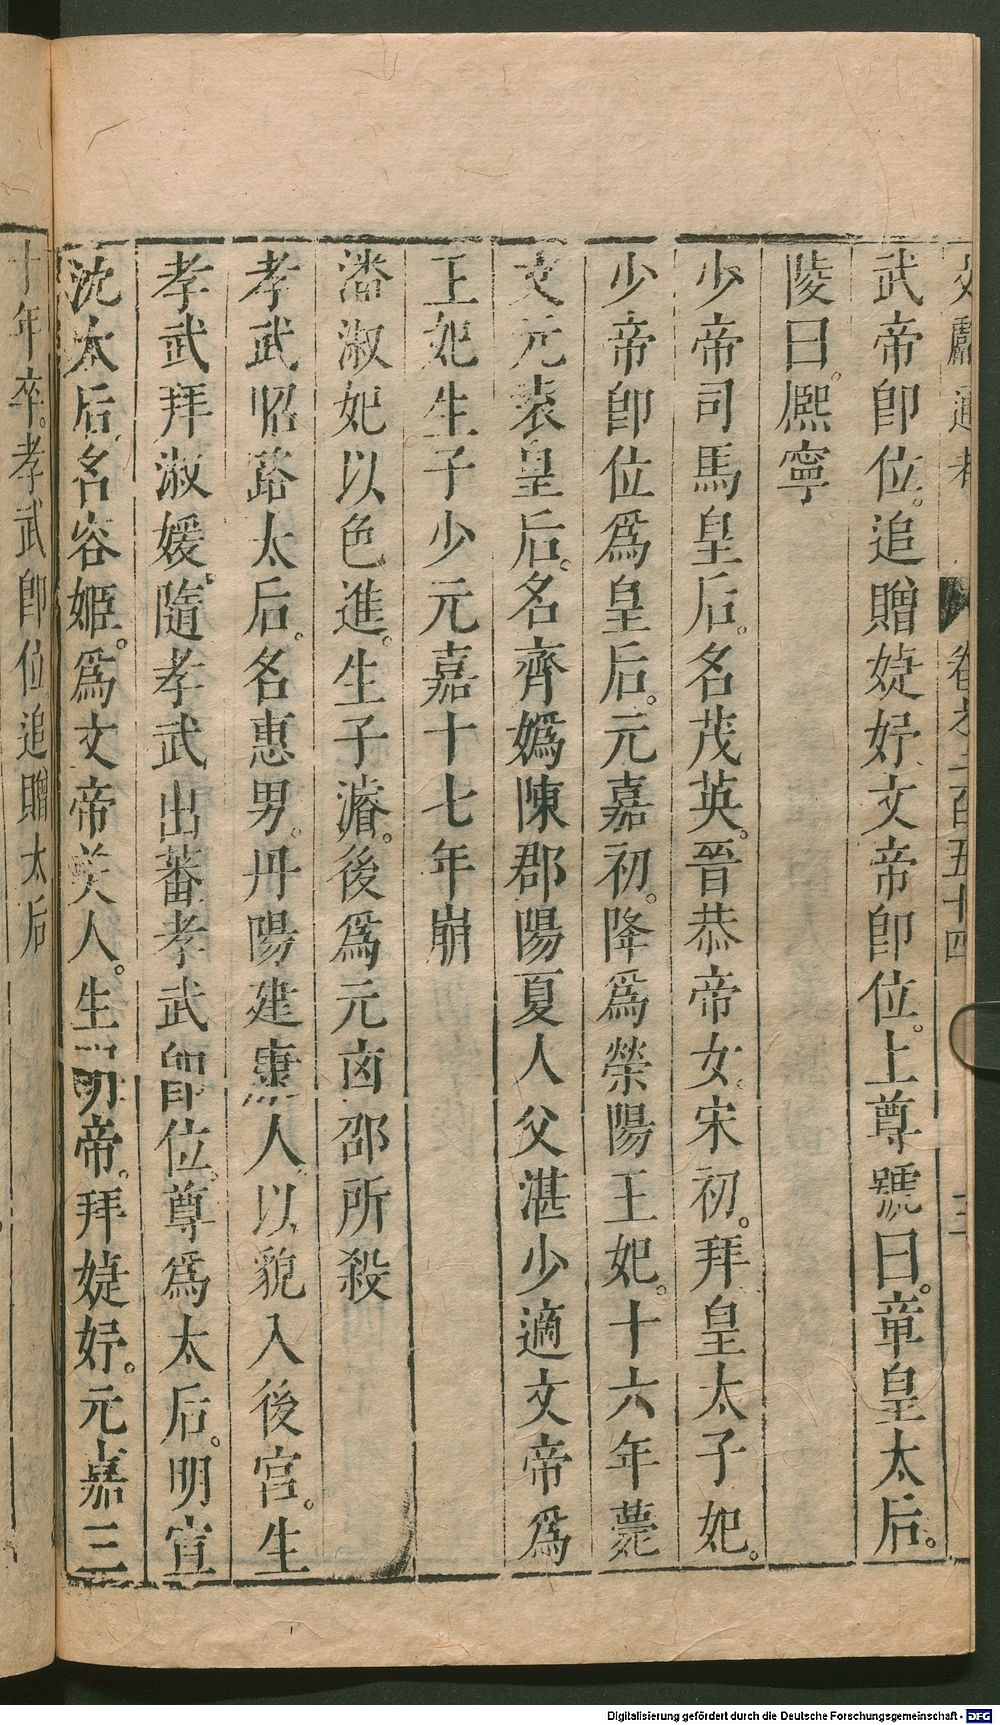 文獻通考 卷之二百五十四
武帝卽位。追贈婕妤文帝卽位。上尊號曰。章皇太后。
陵曰。熈寧
少帝司馬皇后。名茂英。晉恭帝女。宋初。拜皇太子妃。
少帝卽位爲皇后。元嘉初。降爲滎陽王妃。十六年薨
文元袁皇后。名齊嬀陳郡陽夏人父湛少適文帝爲
王妃生子少元嘉十七年崩
潘淑妃以色進。生子濬。後爲元卤邵所殺
孝武昭路太后。名惠男。丹陽建康人。以貌入後宮。生
孝武拜淑媛。隨孝武出蕃孝武卽位。尊爲太后。明宣
沈太后。名容姬。爲文帝美人。生明帝。拜婕妤。元嘉三
十年卒。孝武卽位追贈太后
Digitalisierung gefördert durch die Deutsche Forschungsgemeinschaft - DFG